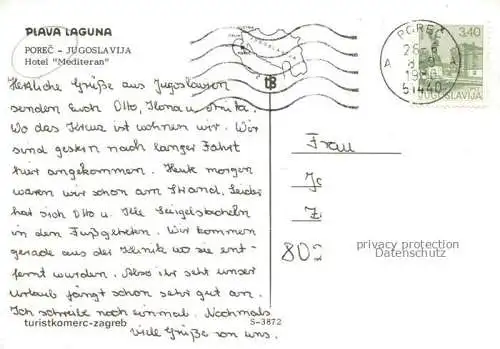 PLAVA LAGUNA
POREČ - JUGOSLAVIJA
Hotel "Mediteran"
Herzliche Grüße aus Jugoslawien
senden Euch Otto, Ilona u.
Wo das Kreuz ist wohnen wir. Wir
sind gestern nach langer Fahrt
hier angekommen. Heute morgen
waren wir schon am Strand. Leider
hat sich Otto u. Ille Seeigelstacheln
in den Fuß getreten. Wir kommen
gerade aus der Klinik wo sie ent-
fernt wurden. Also ihr seht unser
Urlaub fängt schon sehr gut an.
Ich schreibe noch einmal. Nochmals
viele Grüße von uns.
turistkomerc-zagreb
S-3872
POREČ
51440
A
3,40
JUGOSLAVIJA
Frau
802
privacy protection
Datenschutz